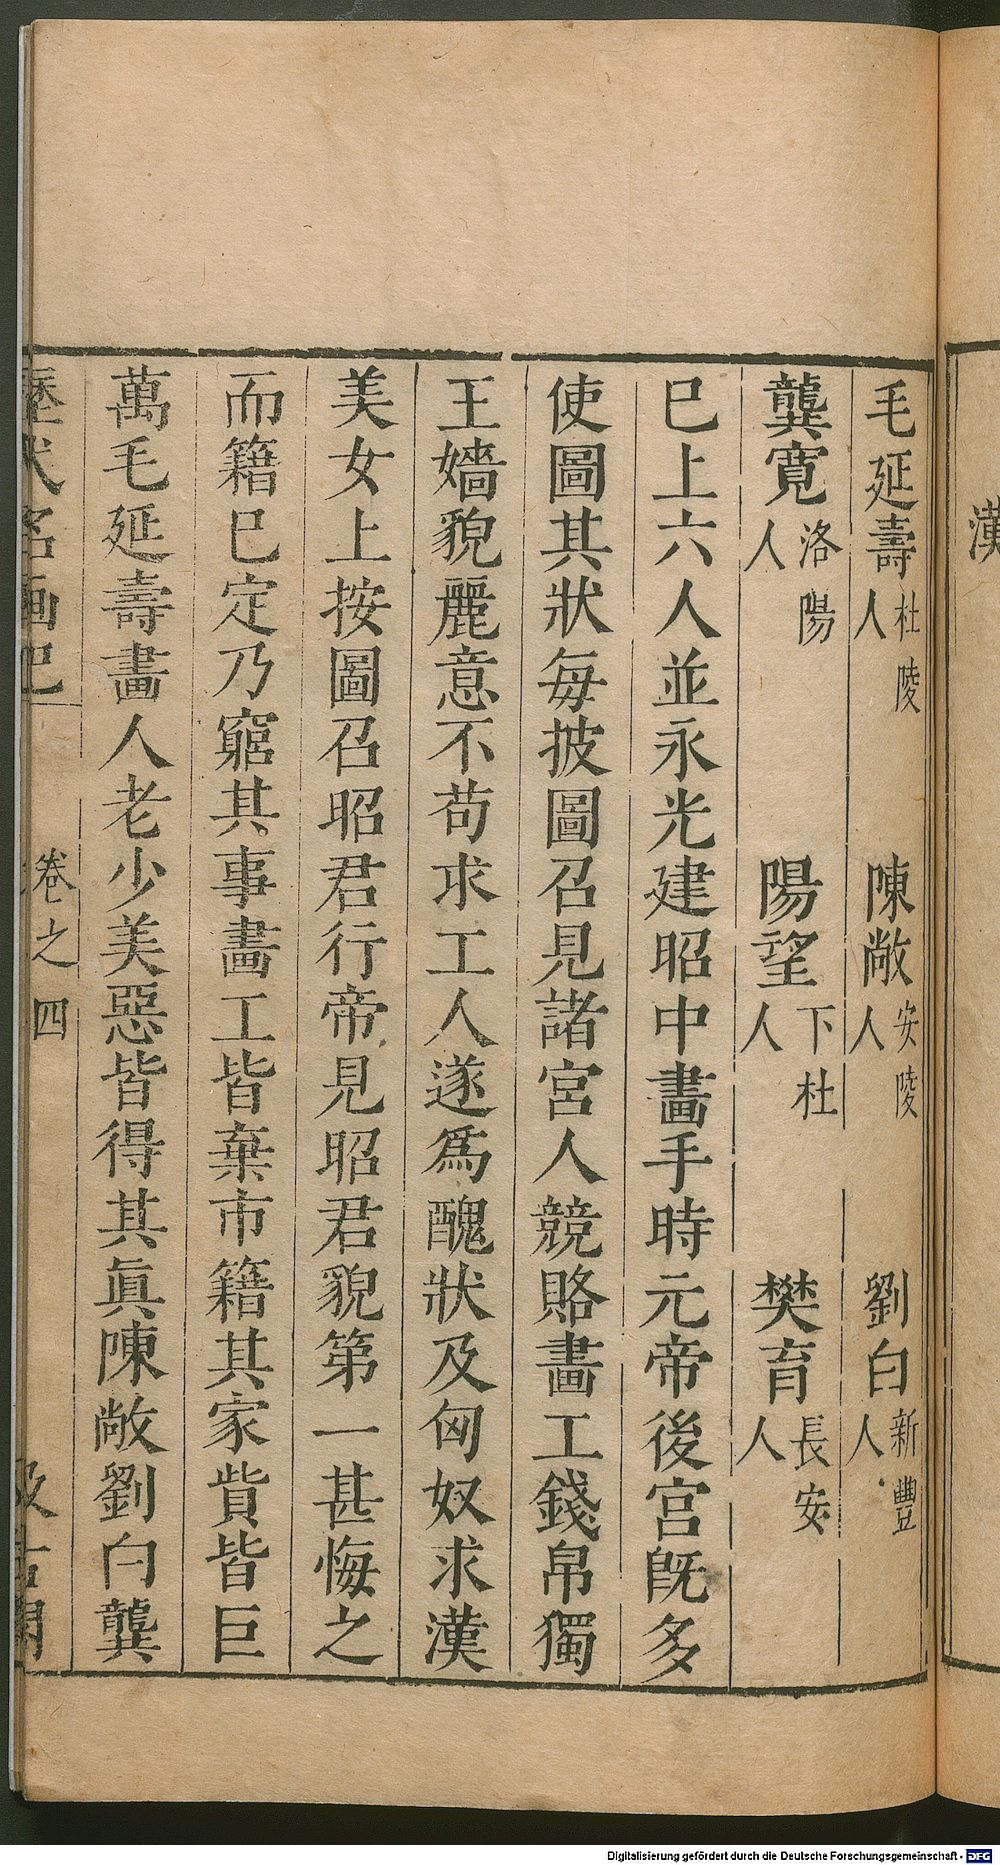 漢
毛延壽杜陵人 陳敞安陵人 劉白新豐人
龔寬洛陽人 陽望下杜人 樊育長安人
巳上六人並永光建昭中畫手時元帝後宮旣多
使圖其狀每披圖召見諸宮人競賂畫工錢帛獨
王嬙貌麗意不苟求工人遂爲醜狀及匈奴求漢
美女上按圖召昭君行帝見昭君貌第一甚悔之
而籍巳定乃窮其事畫工皆棄市籍其家貲皆巨
萬毛延壽畫人老少美惡皆得其眞陳敞劉白龔
歷代名画記 卷之四 汲古閣
Digitalisierung gefördert durch die Deutsche Forschungsgemeinschaft - DFG